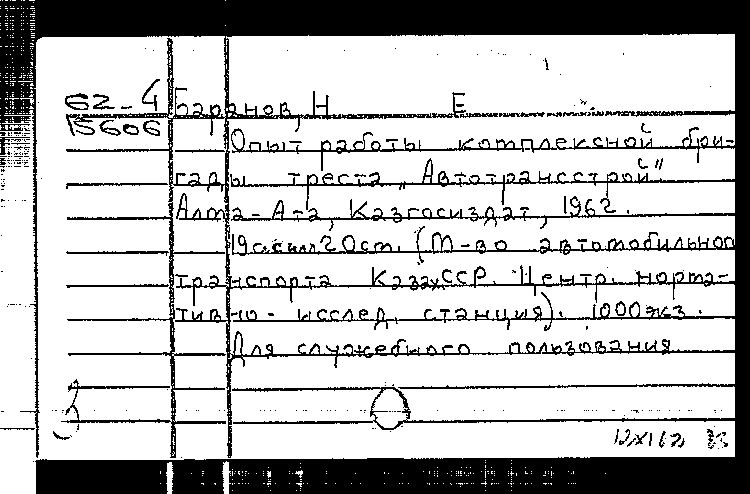 62-4 Баранов, Н Е
15606
Опыт работы комплексной бри-
гады треста „Автотрансстрой"
Алма-Ата, Казгосиздат, 1962.
19с. с илл. 20см. (М-во автомобильного
транспорта КазахССР. Центр. норма-
тивно-исслед. станция). 1000экз.
Для служебного пользования
12XI62